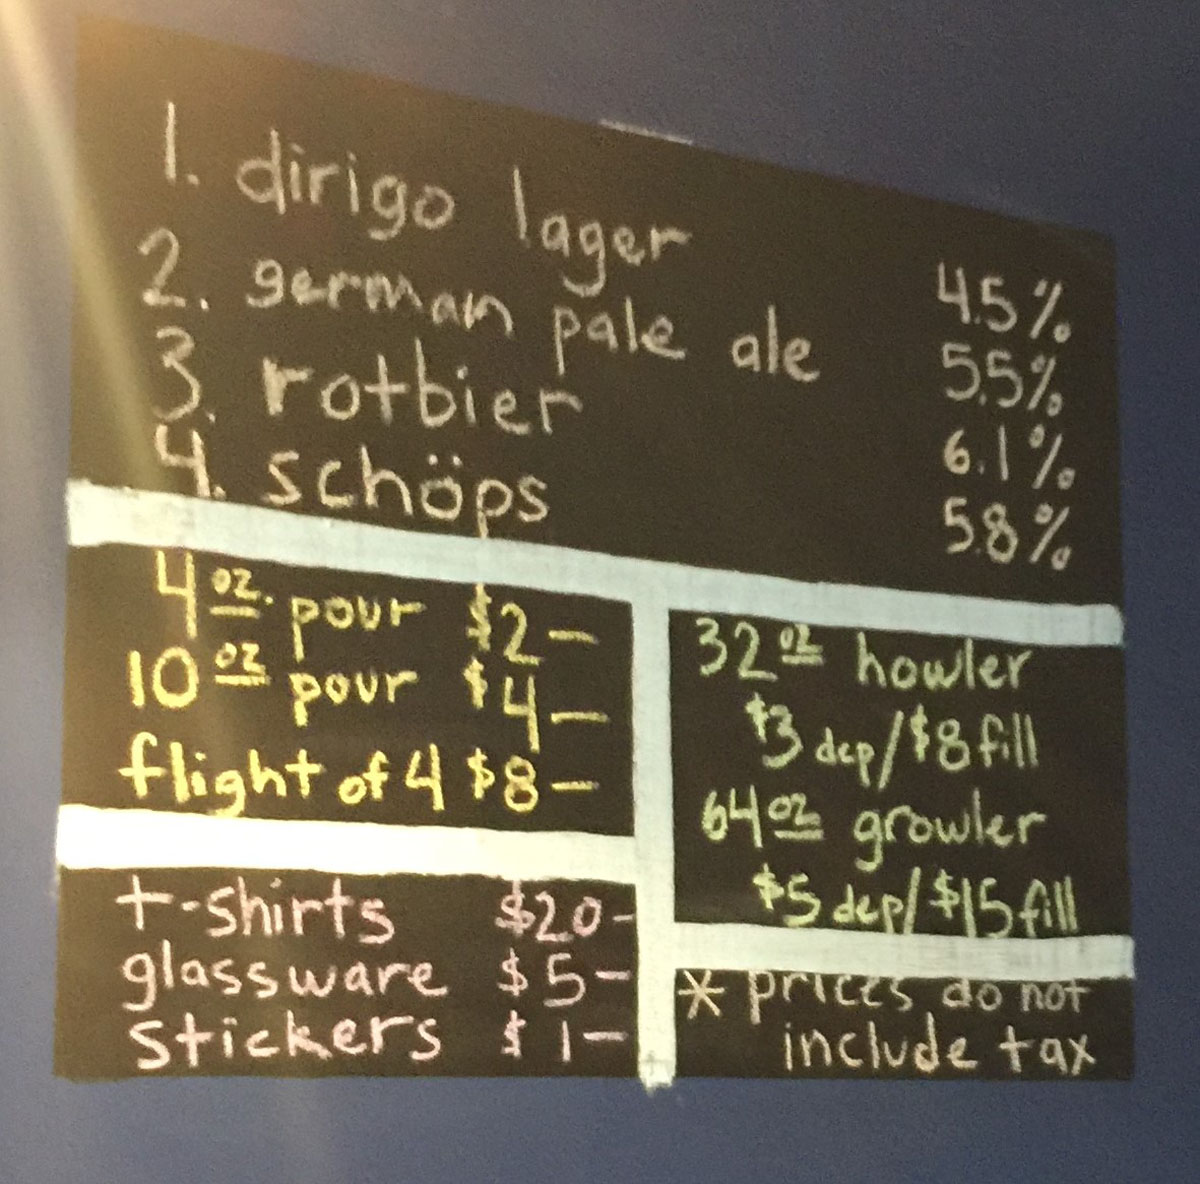 1. dirigo lager 4.5%
2. german pale ale 5.5%
3. rotbier 6.1%
4. schöps 5.8%
4 oz. pour $2—
10 oz pour $4—
flight of 4 $8—
32 oz howler
$3 dep/$8 fill
64 oz growler
$5 dep/$15 fill
t-shirts $20-
glassware $5—
stickers $1—
* prices do not
include tax